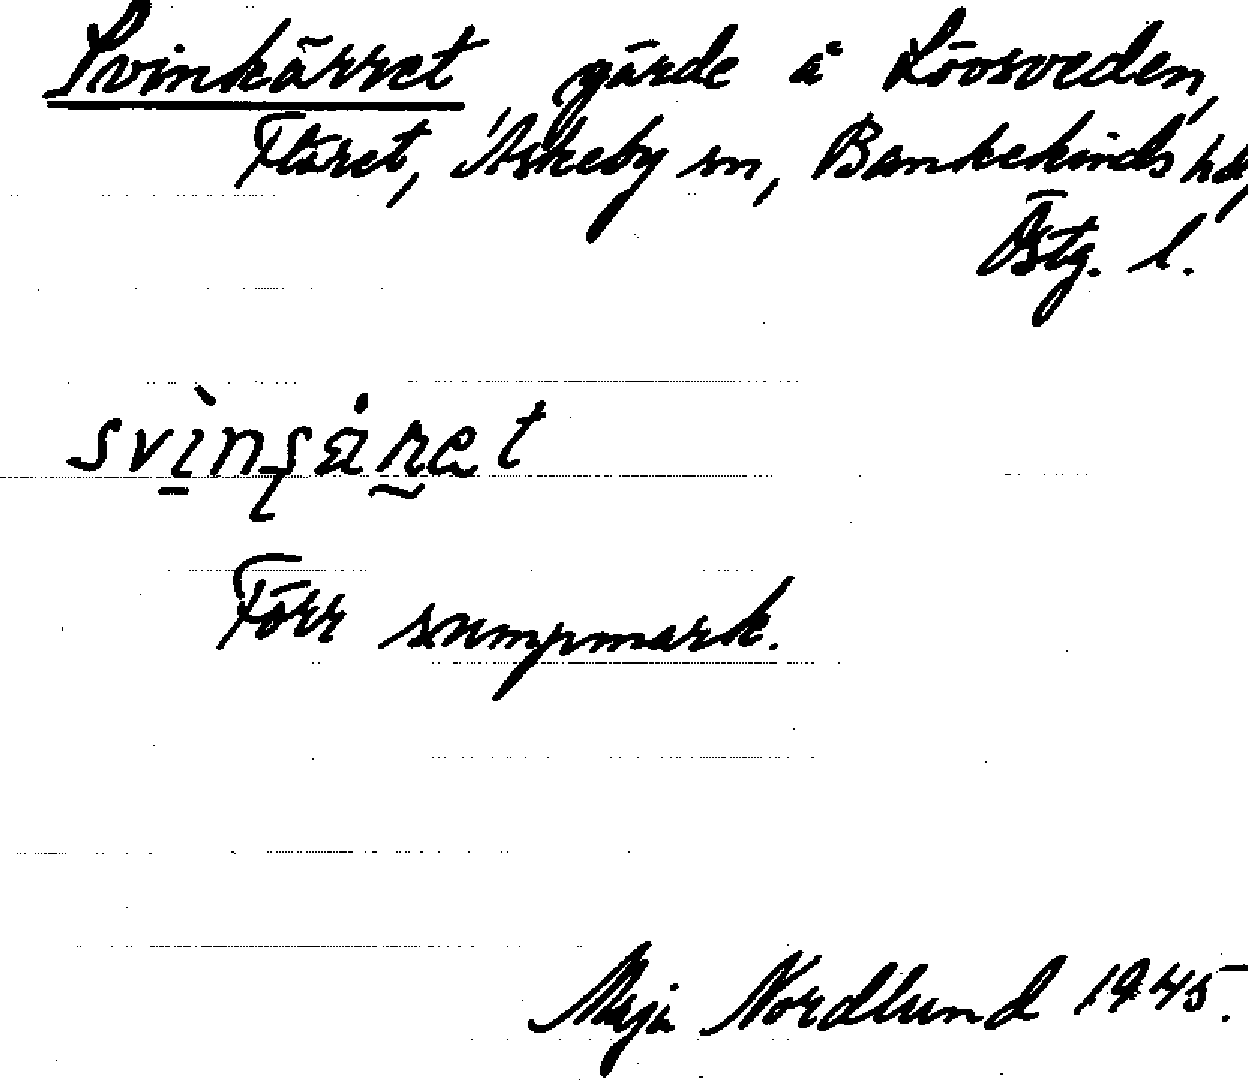 Svinkärret gärde å Lövsveden,
Fläret, Askeby sn, Bankekinds hd,
Östg. l.
svìnʂä̀ret
Förr sumpmark.
Maja Nordlund 1945.